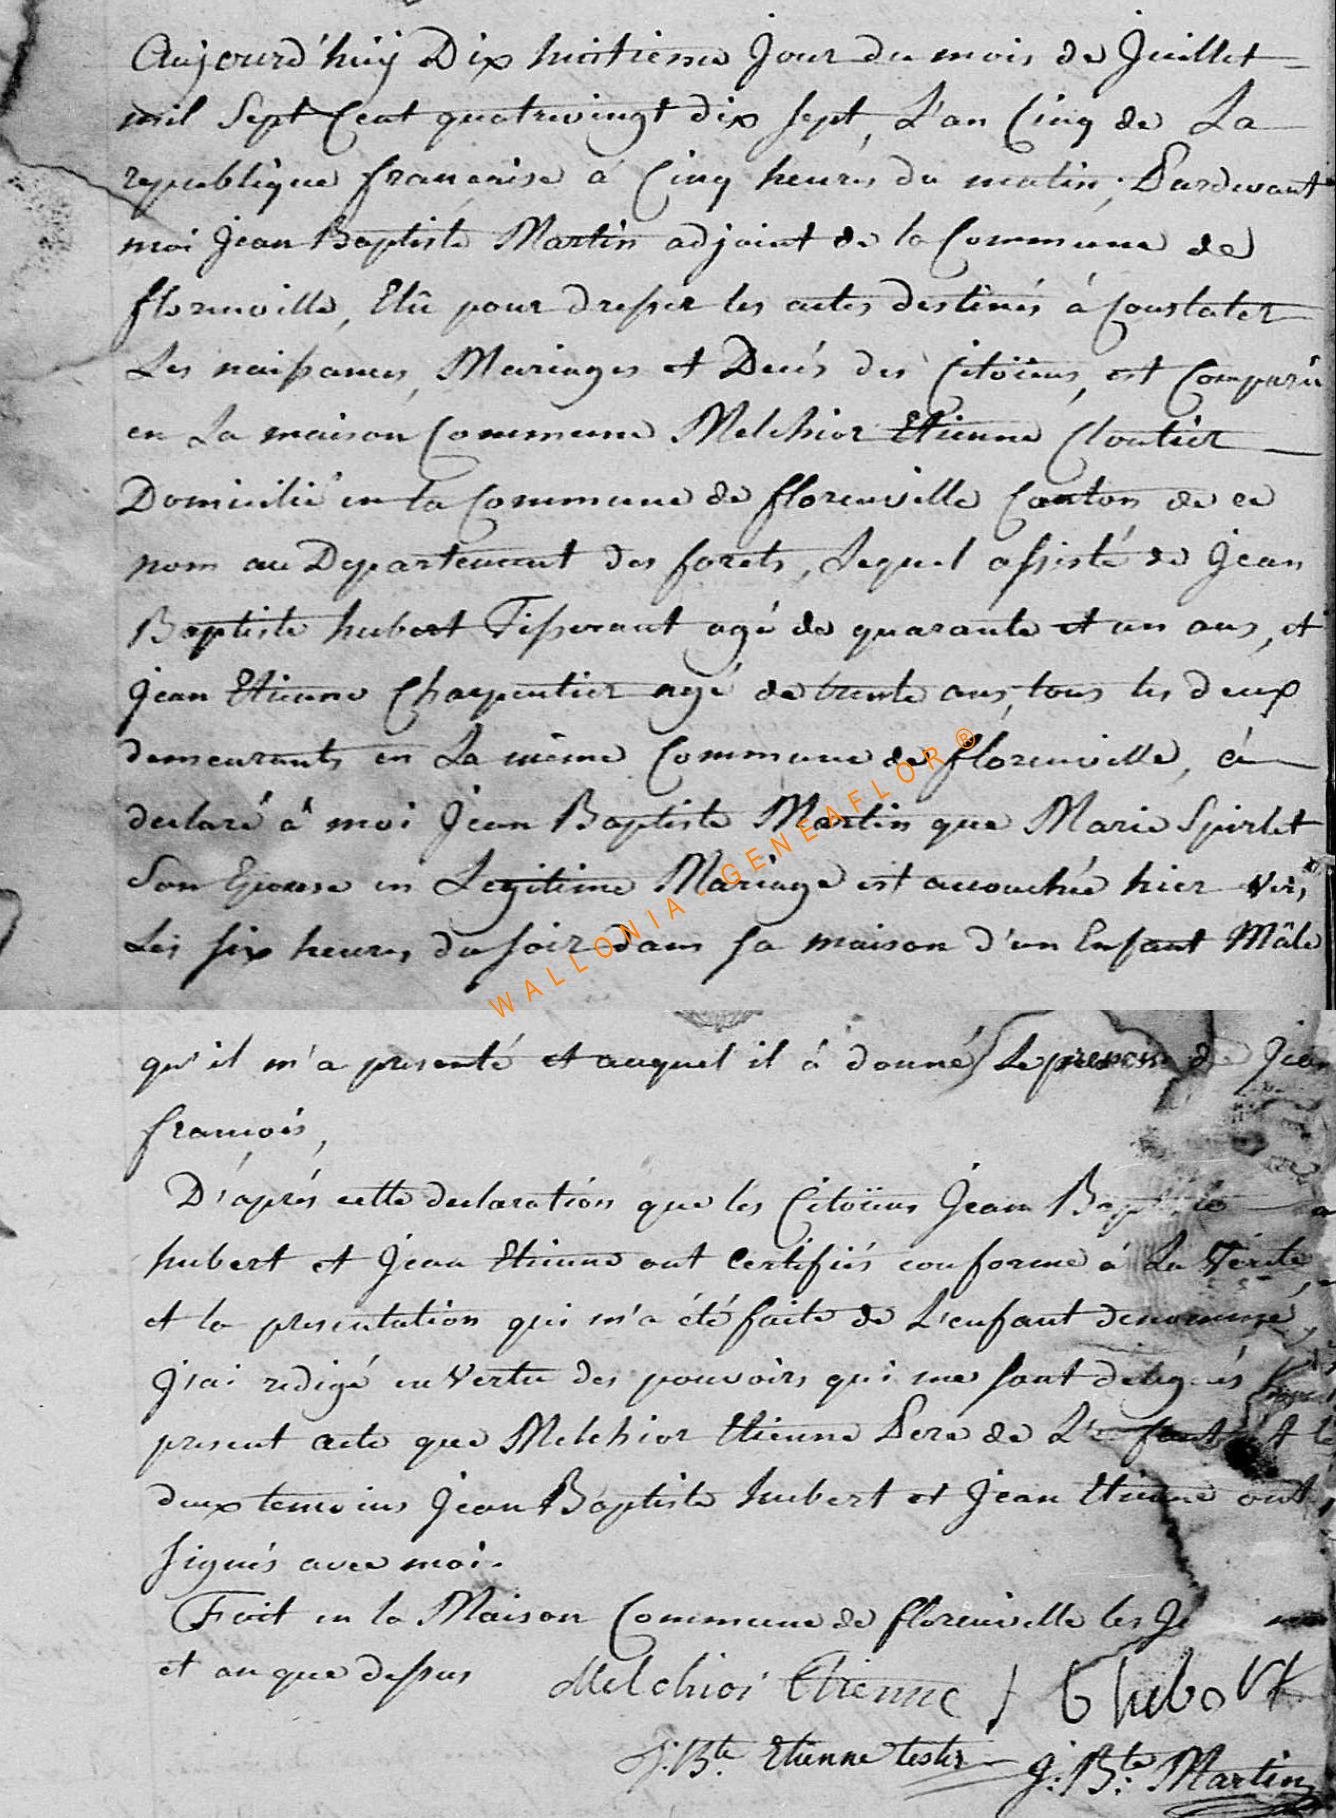 Aujourd'huij Dix huitieme Jour du mois de Juillet
mil Sept Cent quatrevingt dix sept, L'an Cinq de La
republique française à Cinq heures du matin, Pardevant
moi Jean Baptiste Martin adjoint de la Commune de
florenville, Elû pour dresser les actes destinés à Constater
Les naissances, Mariages et Decés des Citoïens, est Comparu
en La maison Commune Melchior Etienne Cloutier
Domicilié en la Commune de florenville Canton de ce
nom au Departement des forets, Lequel assisté de Jean
Baptiste hubert Tisserant agé de quarante et un ans, et
Jean Etienne Charpentier agé de trente ans, tous les deux
demeurants en La même Commune de florenville, à
declaré à moi Jean Baptiste Martin que Marie Spirlet
Son Epouse en Legitime Mariage est accouchée hier Vers
Les six heures du soir dans sa maison d'un Enfant Mâle
WALLONIA-GENEAFLOR®
qu'il m'a presenté et auquel il à donné Le prenom de Jean
francois,
D'aprés cette declaration que les Citoïens Jean Baptiste
hubert et Jean Etienne ont Certifiés conforme à La Vérité,
et la presentation qui m'a été faite de L'enfant denommé,
J'ai redigé en Vertu des pouvoirs qui me sont delegués
present acte que Melchior Etienne Pere de L'enfant et les
deux temoins Jean Baptiste hubert et Jean Etienne ont
signés avec moi.
Fait en la Maison Commune de florenville les Jour mois
et an que dessus
Melchior Etienne J b hubert
J: Bte Etienne J: Bte: Martin